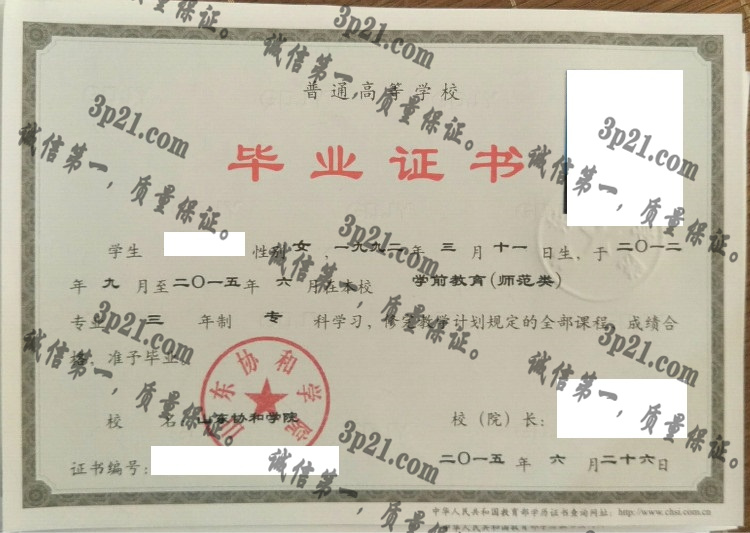 普通高等学校
毕业证书
学生 性别 女 ,一九九二年 三 月 十一 日生,于 二〇一二
年 九 月至 二〇一五 年 六 月在本校 学前教育(师范类)
专业 三 年制 专 科学习,修完教学计划规定的全部课程,成绩合
格,准予毕业。
山东协和学院
校 名:山东协和学院 校(院)长:
证书编号: 二〇一五 年 六 月 二十六 日
中华人民共和国教育部学历证书查询网址:http://www.chsi.com.cn
3p21.com
诚信第一,质量保证。
3p21.com
诚信第一,质量保证。
3p21.com
诚信第一,质量保证。
3p21.com
诚信第一,质量保证。
3p21.com
诚信第一,质量保证。
3p21.com
诚信第一,质量保证。
3p21.com
诚信第一,质量保证。